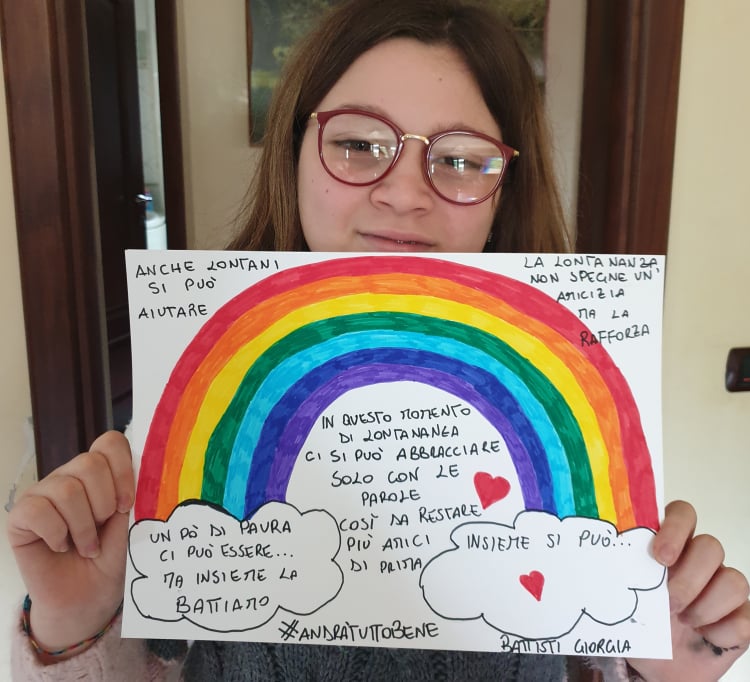 ANCHE LONTANI
SI PUÒ
AIUTARE
LA LONTANANZA
NON SPEGNE UN'
AMICIZIA
MA LA
RAFFORZA
IN QUESTO MOMENTO
DI LONTANANZA
CI SI PUÒ ABBRACCIARE
SOLO CON LE
PAROLE
COSÌ DA RESTARE
PIÙ AMICI
DI PRIMA
UN PÒ DI PAURA
CI PUÒ ESSERE...
MA INSIEME LA
BATTIAMO
INSIEME SI PUÒ...
#ANDRATUTTOBENE
BATTISTI GIORGIA